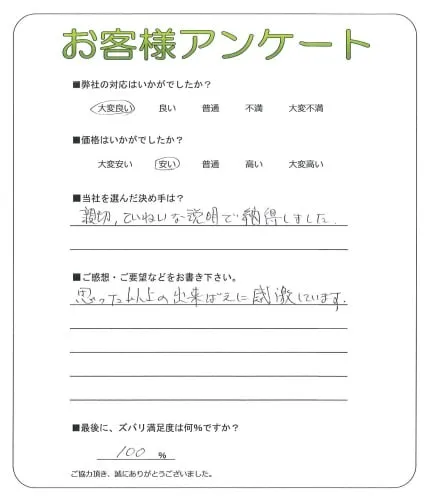 お客様アンケート
■弊社の対応はいかがでしたか？
大変良い 良い 普通 不満 大変不満
■価格はいかがでしたか？
大変安い 安い 普通 高い 大変高い
■当社を選んだ決め手は？
親切,ていねいな説明で納得しました.
■ご感想・ご要望などをお書き下さい。
思った以上の出来ばえに感激しています.
■最後に、ズバリ満足度は何%ですか？
100 %
ご協力頂き、誠にありがとうございました。